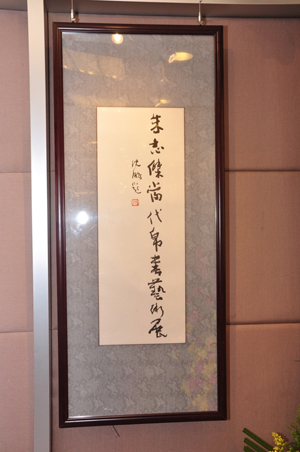 朱志杰當代帛書藝術展
沈鵬題